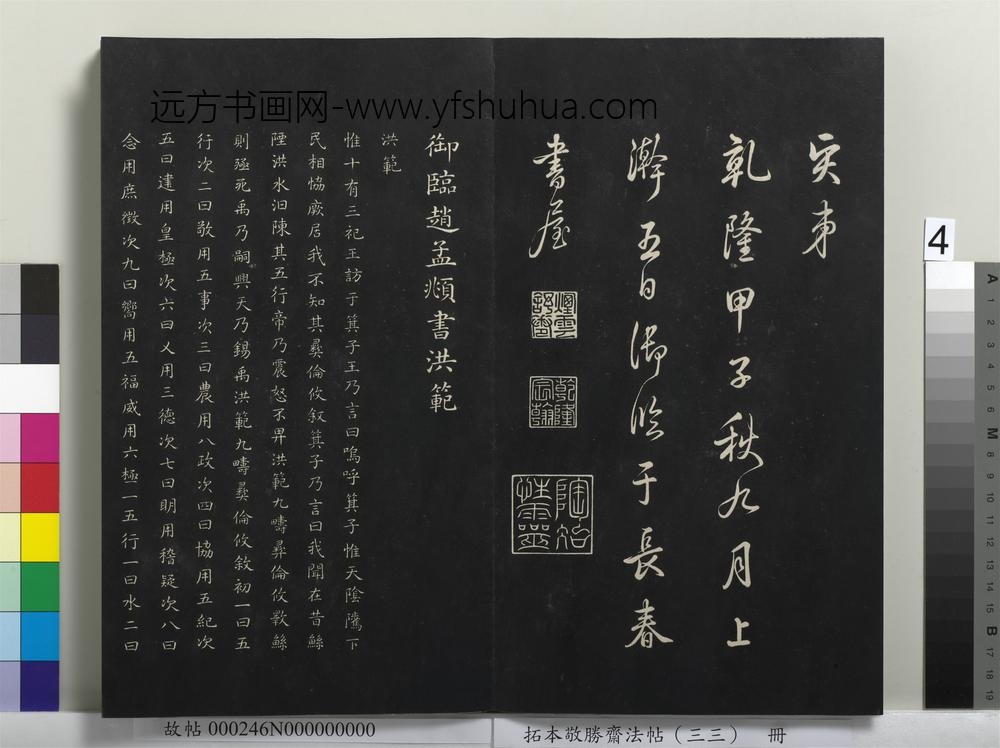 東
乾隆甲子秋九月上
澣五日御臨于長春
書屋
煙雲舒卷
乾隆宸翰
陶冶性靈
御臨趙孟頫書洪範
洪範
惟十有三祀王訪于箕子王乃言曰嗚呼箕子惟天陰騭下
民相恊厥居我不知其彝倫攸叙箕子乃言曰我聞在昔鯀
陻洪水汩陳其五行帝乃震怒不畀洪範九疇彝倫攸斁鯀
則殛死禹乃嗣興天乃錫禹洪範九疇彝倫攸敘初一曰五
行次二曰敬用五事次三曰農用八政次四曰協用五紀次
五曰建用皇極次六曰乂用三德次七曰明用稽疑次八曰
念用庶徵次九曰嚮用五福威用六極一五行一曰水二曰
远方书画网-www.yfshuhua.com
4
A 1 2 3 4 5 6 M 8 9 10 11 12 13 14 15 B 17 18 19
故帖 000246N000000000
拓本敬勝齋法帖（三三） 冊